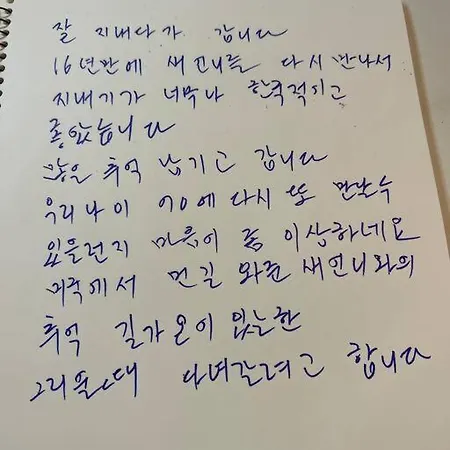 잘 지내다가 갑니다
16년만에 새언니를 다시 만나서
지내기가 너무나 한국적이고
좋았습니다
많은 추억 남기고 갑니다
우리 나이 70에 다시 또 만날수
있을런지 마음이 좀 이상하네요
미국에서 먼길 와준 새언니와의
추억 길가온이 있는한
그리울때 다녀갈려고 합니다